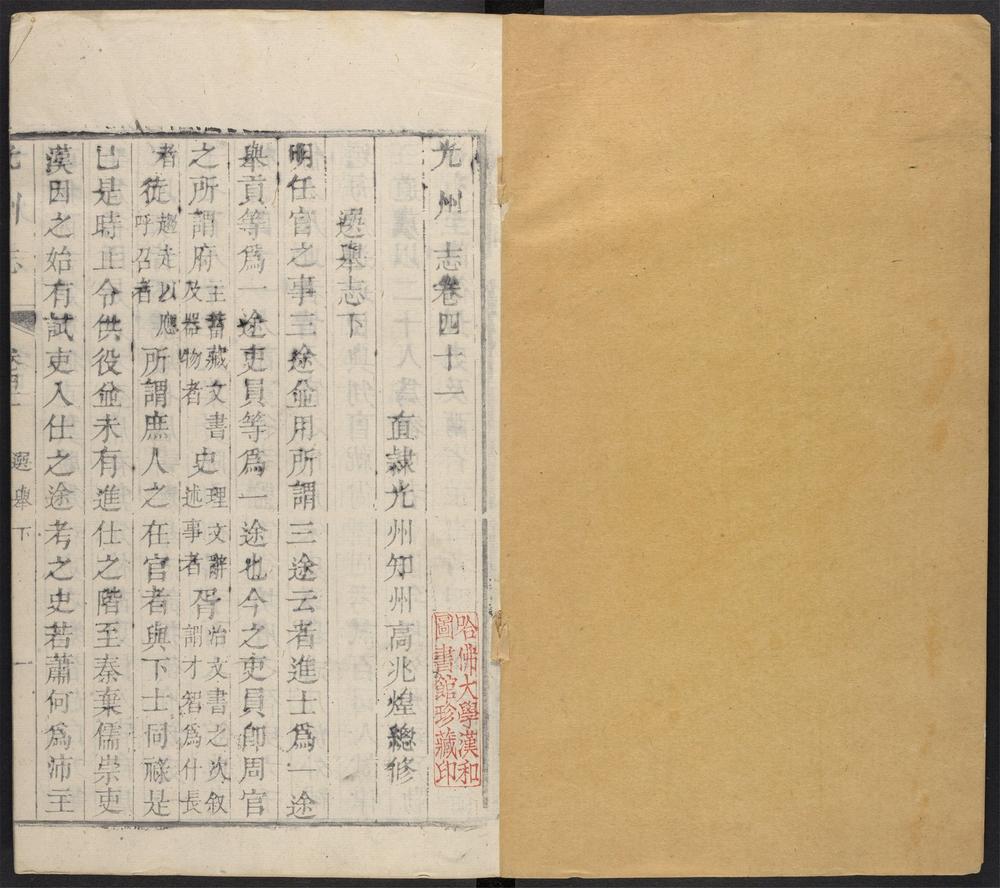 光州志卷四十一
直隸光州知州高兆煌總修
選舉志下
明任官之事三途並用所謂三途云者進士爲一途
舉貢等爲一途吏員等爲一途也今之吏員卽周官
之所謂府主蓄藏文書及器物者史理文辭述事者胥治文書之次叙謂才智爲什長
者徒趨走以應呼召者所謂庶人之在官者與下士同祿是
已是時止令供役並未有進仕之階至秦棄儒崇吏
漢因之始有試吏入仕之途考之史若蕭何爲沛主
光州志
選舉下
一
哈佛大學漢和圖書館珍藏印